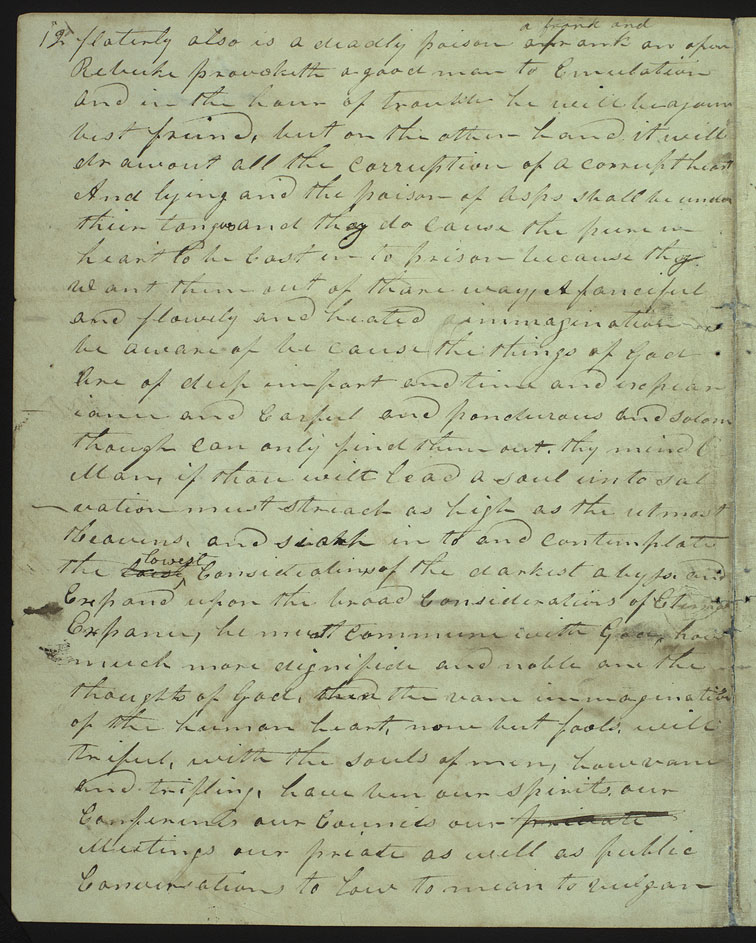 12
a frank and
flaterly also is a deadly poison a frank an open
Rebuke provoketh a good man to Emulation
And in the hour of trouble he will be your
best friend, but on the other hand it will
draw out all the corruption of a corrupt heart
And lying and the poison of asps shall be under
their tongues and they do cause the pure in
heart to be cast in to prison because they
want them out of thare way, A fanciful
and flowely and heated immagination
be aware of be cause the things of God
Are of deep import and time and expear
iance and carful and pondurous and solom
though can only find them out. thy mind O
Man, if thou wilt lead a soul unto sal
vation must streach as high as the utmost
Heavens, and search in to and contemplate
the lowest Considerations of the darkest abyss and
Expand upon the broad Considerations of Eternal
Expance, he must commune with God, how
much more dignifide and noble are the
thoughts of God, than the vane immaginations
of the human heart, none but fools, will
triful, with the souls of men, how vane
and trifling, have ben our spirits, our
Conferencs our Councils our private
Meetings our priate as well as public
Conversations to low to mean to vulgar